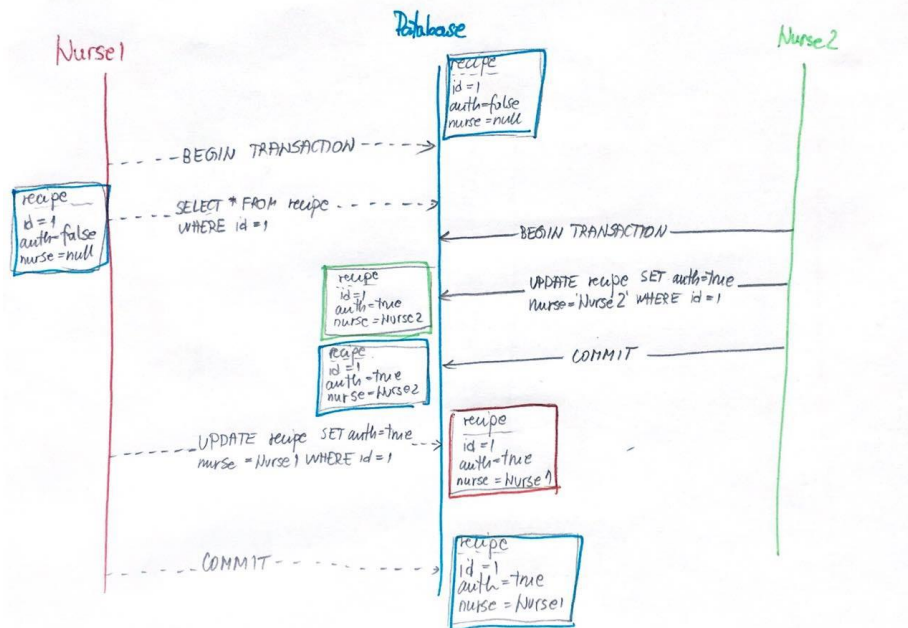 Nurse1
Database
Nurse2
recipe
id=1
auth=false
nurse=null
BEGIN TRANSACTION
recipe
id=1
auth=false
nurse=null
SELECT * FROM recipe
WHERE id=1
BEGIN TRANSACTION
UPDATE recipe SET auth=true
nurse='Nurse2' WHERE id=1
recipe
id=1
auth=true
nurse=Nurse2
COMMIT
recipe
id=1
auth=true
nurse=Nurse2
UPDATE recipe SET auth=true
nurse=Nurse1 WHERE id=1
recipe
id=1
auth=true
nurse=Nurse1
COMMIT
recipe
id=1
auth=true
nurse=Nurse1